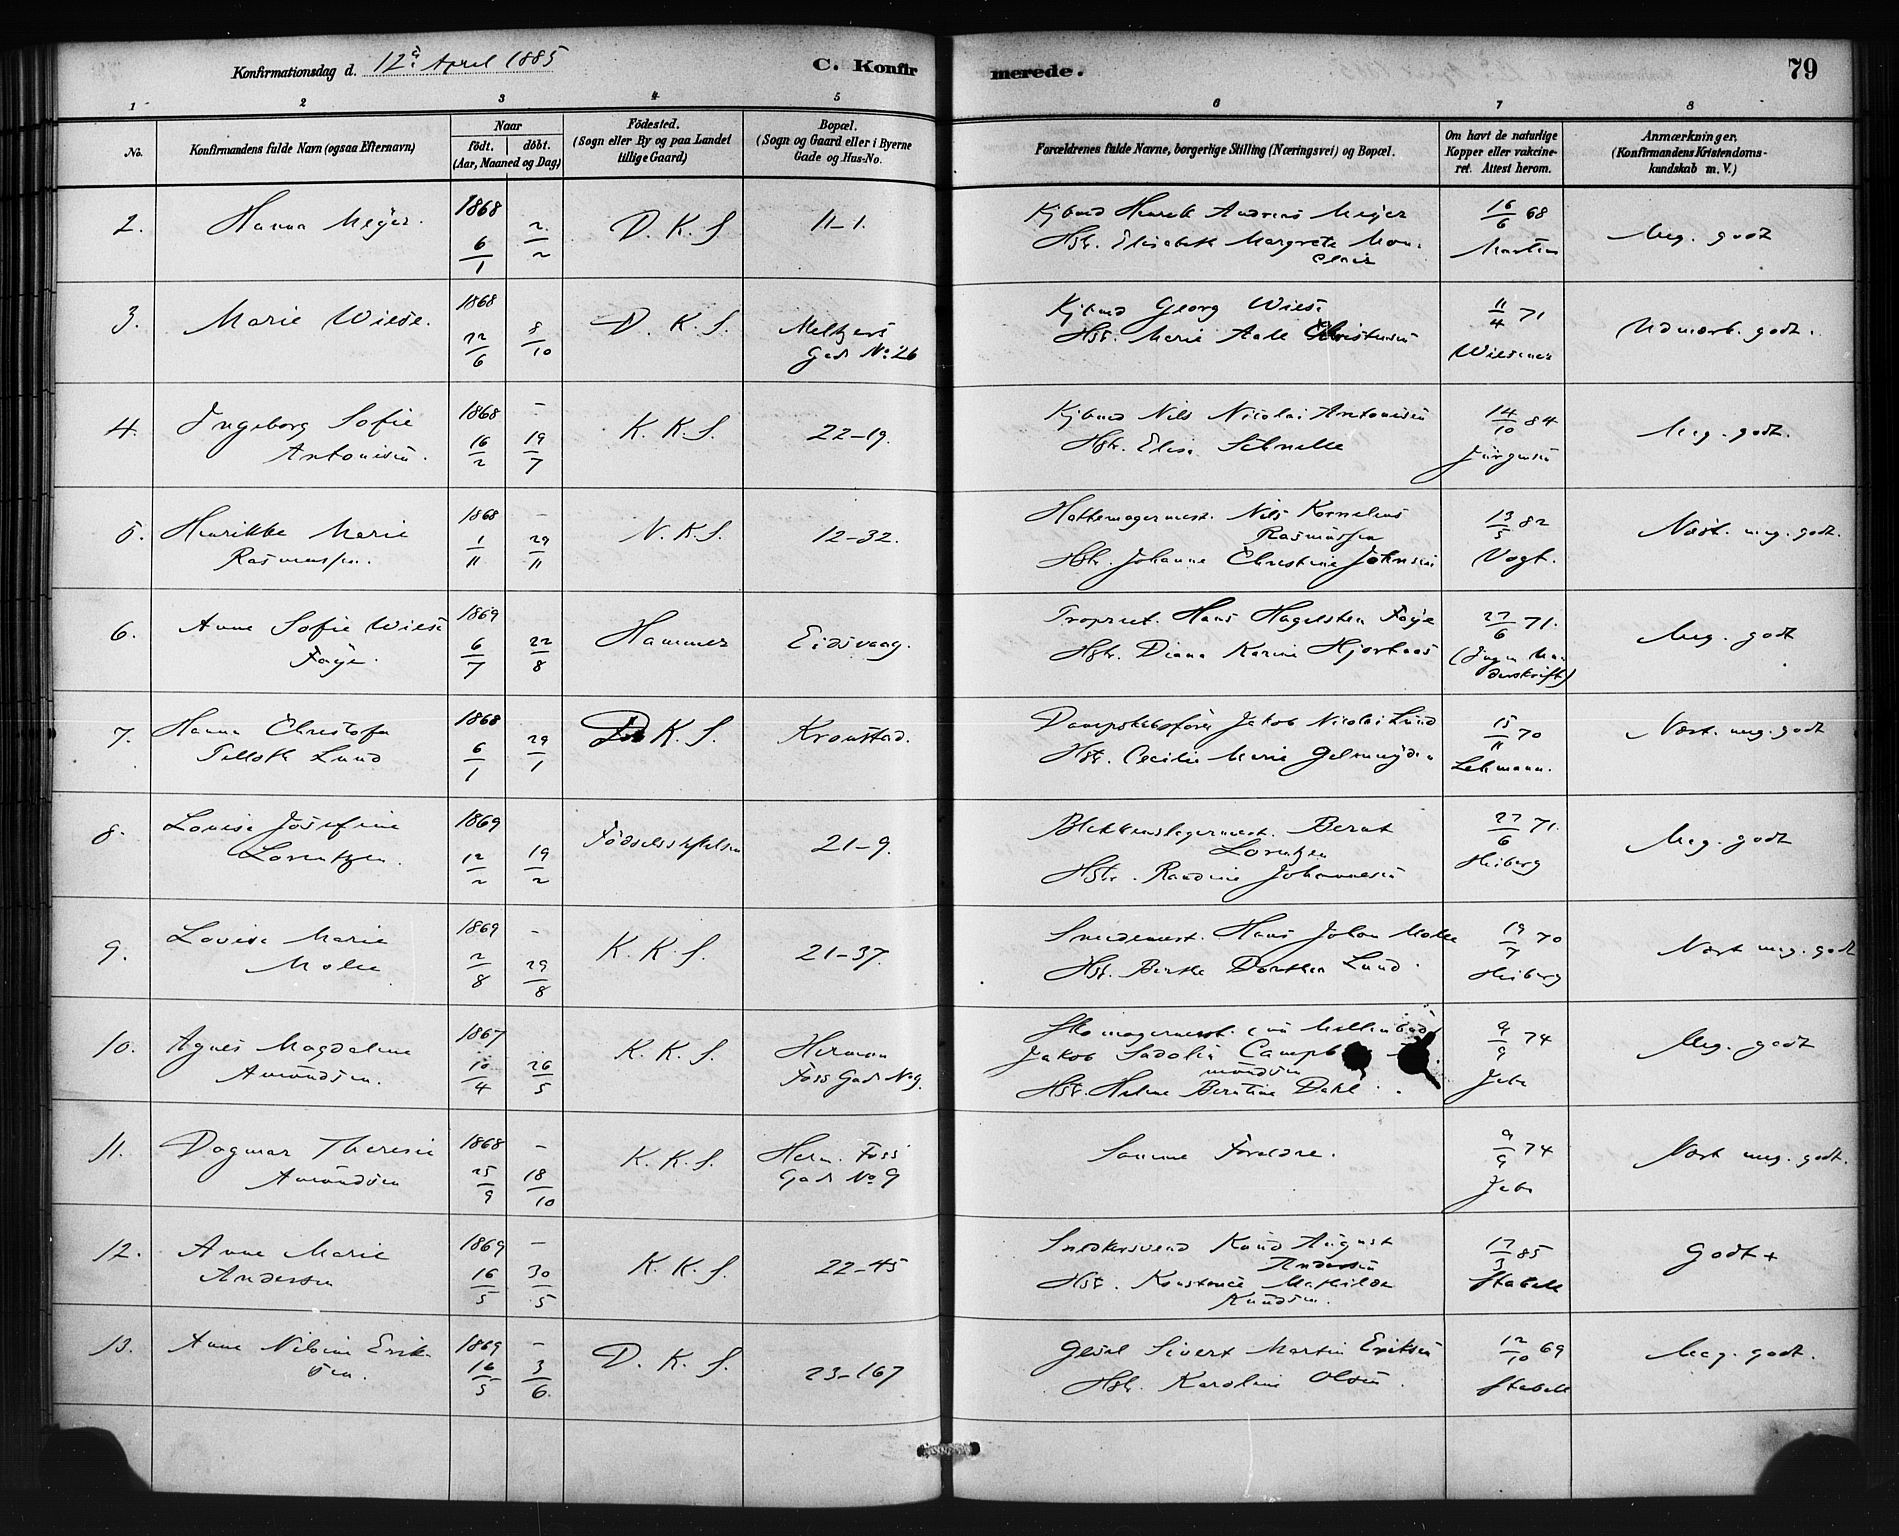 Konfirmationsdag d. 12te April 1885 C. Konfirmerede. 79
1 2 3 4 5 6 7 8
No. Konfirmandens fulde Navn (ogsaa Efternavn) Naar født. døbt. (Aar, Maaned og Dag) Fødested. (Sogn eller By og paa Landet tillige Gaard) Bopæl. (Sogn og Gaard eller i Byerne Gade og Hus-No. Forældrenes fulde Navne, borgerlige Stilling (Næringsvei) og Bopæl. Om havt de naturlige Kopper eller vakcineret. Attest herom. Anmærkninger. (Konfirmandens Kristendomskundskab m. V.)
2. Hanna Meyer. 1868 6/1 2/2 D. K. S. 11-1. Kjbmd Henrik Andreas Meyer 16/6 68 Meg. godt
Hstr. Elisabeth Margrete Mon- Martens
clair
3. Marie Wiese. 1868 22/6 8/10 D. K. S. Meltzers Kjbmd Georg Wiese 11/4 71 Udmærk. godt.
Gade No 26 Hstr. Marie Aall Christensen Wiesener
4. Ingeborg Sofie 1868 - K. K. S. 22-19. Kjbmd Nils Nicolai Antonisen 14/10 84 Meg. godt.
Antonisen. 16/2 19/7 Hstr. Elise Schnelle Jürgensen
5. Henrikke Marie 1868 - N. K. S. 12-32. Hattemagermest. Nils Kornelius 13/5 82 Næst. meg. godt.
Rasmussen. 1/11 29/11 Rasmussen
Hstr. Johanne Christine Johnsen Vogt.
6. Anne Sofie Wiese 1869 Hammer Eidsvaag. Propriet. Hans Hagelsten Faye 27/6 71. Meg. godt
Faye. 6/7 22/8 Hstr. Diana Karine Hjorthaas (Ingen Un-
derskrift)
7. Hanna Christofa 1868 D K. S. Kronstad. Dampskibsfører Jakob Nicolai Lund 15/11 70 Næst. meg. godt
Lund 6/1 29/1 Hstr. Cecilie Marie Gelmuyden Lehmann.
8. Lovise Josefine 1869 Fødselsstiftelsen 21-9. Blikkenslagermest. Bernt 27/6 71. Meg. godt
Lorentzen. 12/2 19/2 Lorentzen Heiberg
Hstr. Randine Johannesen
9. Lovise Marie 1869 - K. K. S. 21-37. Smedemest. Hans Johan Molle 19/7 70 Næst meg. godt
Molle 2/8 29/8 Hstr. Berthe Dorthea Lund. Heiberg
10. Agnes Magdalene 1867 K. K. S. Herman Skomagermest. 9/9 74 Meg. godt
Amundsen. 10/4 26/5 Foss Gade No 9. Jakob Sadolin
mundsen
Hstr. Helene Berntine Dahl.
11. Dagmar Theresie 1868 - K. K. S. Herm. Foss Samme Forældre. 9/9 74 Næst meg. godt.
Amundsen 25/9 18/10 Gade No 9
12. Anne Marie 1869 - K. K. S. 22-45 Snedkersvend Knud August 17/3 85 Godt+
Andersen 16/5 30/5 Andersen
Hstr. Konstance Mathilde Stabell
Knudsen.
13. Anne Nilsine Erik- 1869 - D. K. S. 23-167 Gesel Sivert Martin Eriksen 12/10 69 Meg. godt.
sen. 16/5 3/6. Hstr. Karoline Olsen. Stabell